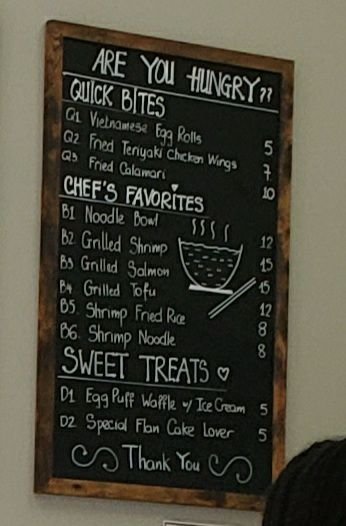 ARE YOU HUNGRY??
QUICK BITES
Q1 Vietnamese Egg Rolls 5
Q2 Fried Teriyaki Chicken Wings 7
Q3 Fried Calamari 10
CHEF'S FAVORITES
B1 Noodle Bowl 12
B2 Grilled Shrimp 15
B3 Grilled Salmon 15
B4 Grilled Tofu 12
B5 Shrimp Fried Rice 8
B6 Shrimp Noodle 8
SWEET TREATS ♡
D1 Egg Puff Waffle w/ Ice Cream 5
D2 Special Flan Cake Lover 5
Thank You